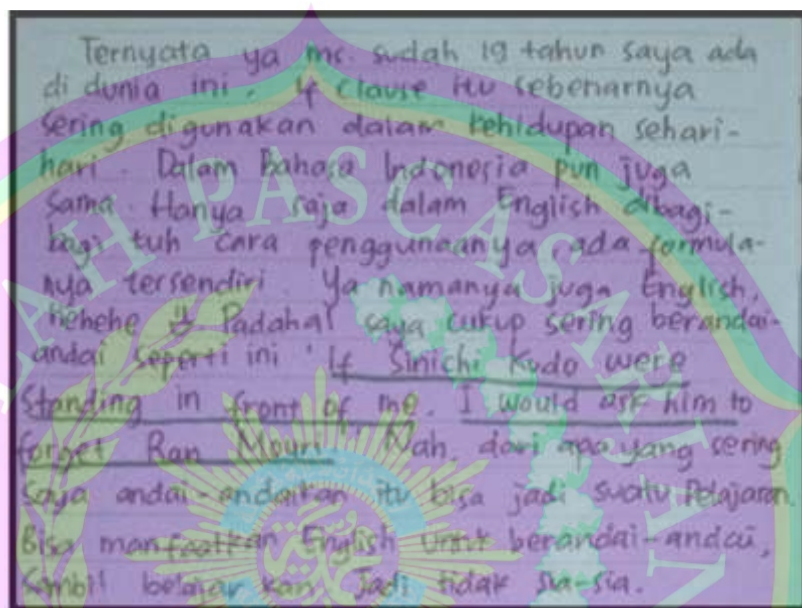 Ternyata ya ms. sudah 19 tahun saya ada
di dunia ini. If Clause itu sebenarnya
sering digunakan dalam kehidupan sehari-
hari. Dalam Bahasa Indonesia pun juga
sama. Hanya saja dalam English dibagi-
bagi tuh cara penggunaanya, ada formula-
nya tersendiri. Ya namanya juga English,
hehehe Padahal saya cukup sering berandai-
andai seperti ini "If Sinichi Kudo were
Standing in front of me. I would ask him to
forget Ran Mouri". Nah, dari apa yang sering
saya andai-andaikan itu bisa jadi suatu Pelajaran.
Bisa manfaatkan English untuk berandai-andai,
Sambil belajar kan. Jadi tidak sia-sia.
LAH PASCASARJAN